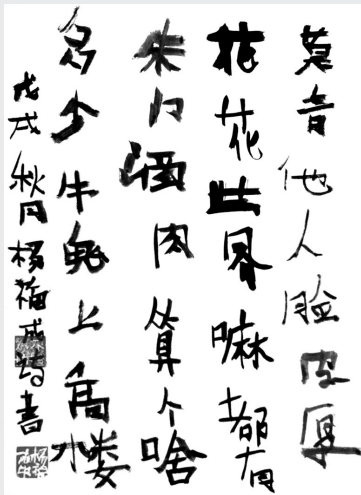 莫音他人脸皮厚
花花世界嘛都有
朱门酒肉算个啥
多少牛鬼上高楼
戊戌秋月杨福成诗书